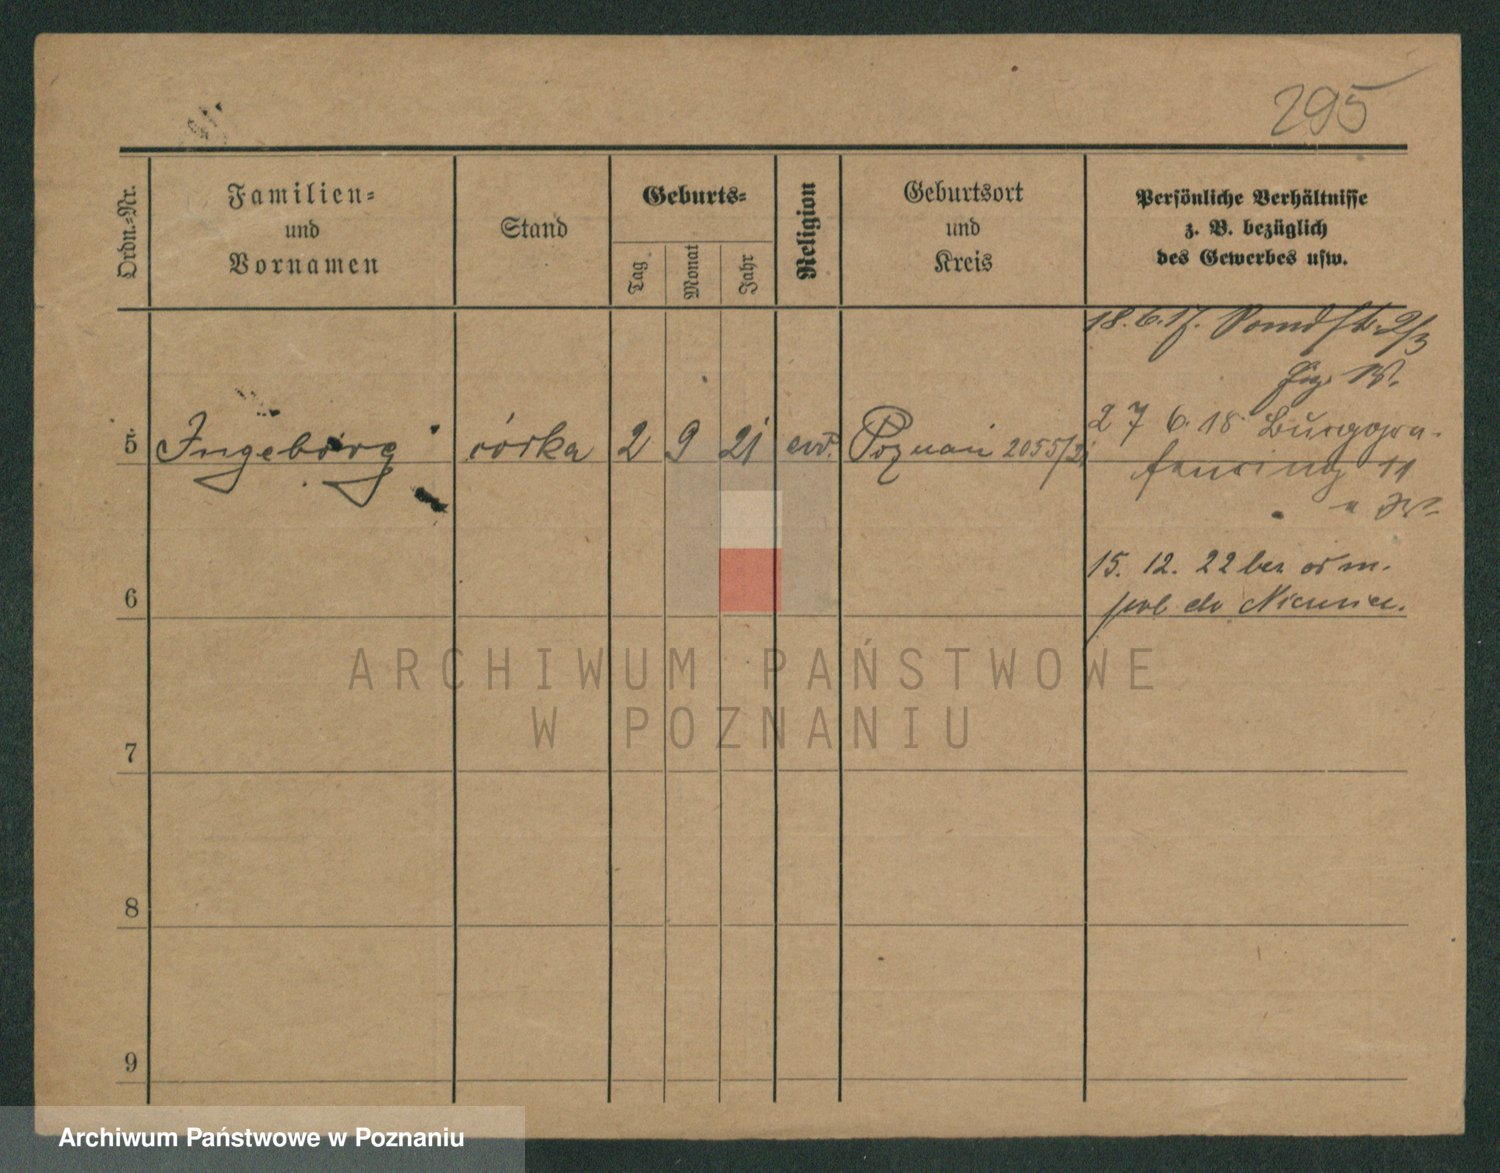 295
Ordn.-Nr.
Familien-
und
Vornamen
Stand
Geburts-
Tag
Monat
Jahr
Religion
Geburtsort
und
Kreis
Persönliche Verhältnisse
z. B. bezüglich
des Gewerbes usw.
18. 6. 17.
5 Ingeborg córka 2 9 21 Poznań 2055/21
27 6. 18 Burggra-
fenring 11
15. 12. 22 bez
do
6
7
8
9
ARCHIWUM PAŃSTWOWE
W POZNANIU
Archiwum Państwowe w Poznaniu